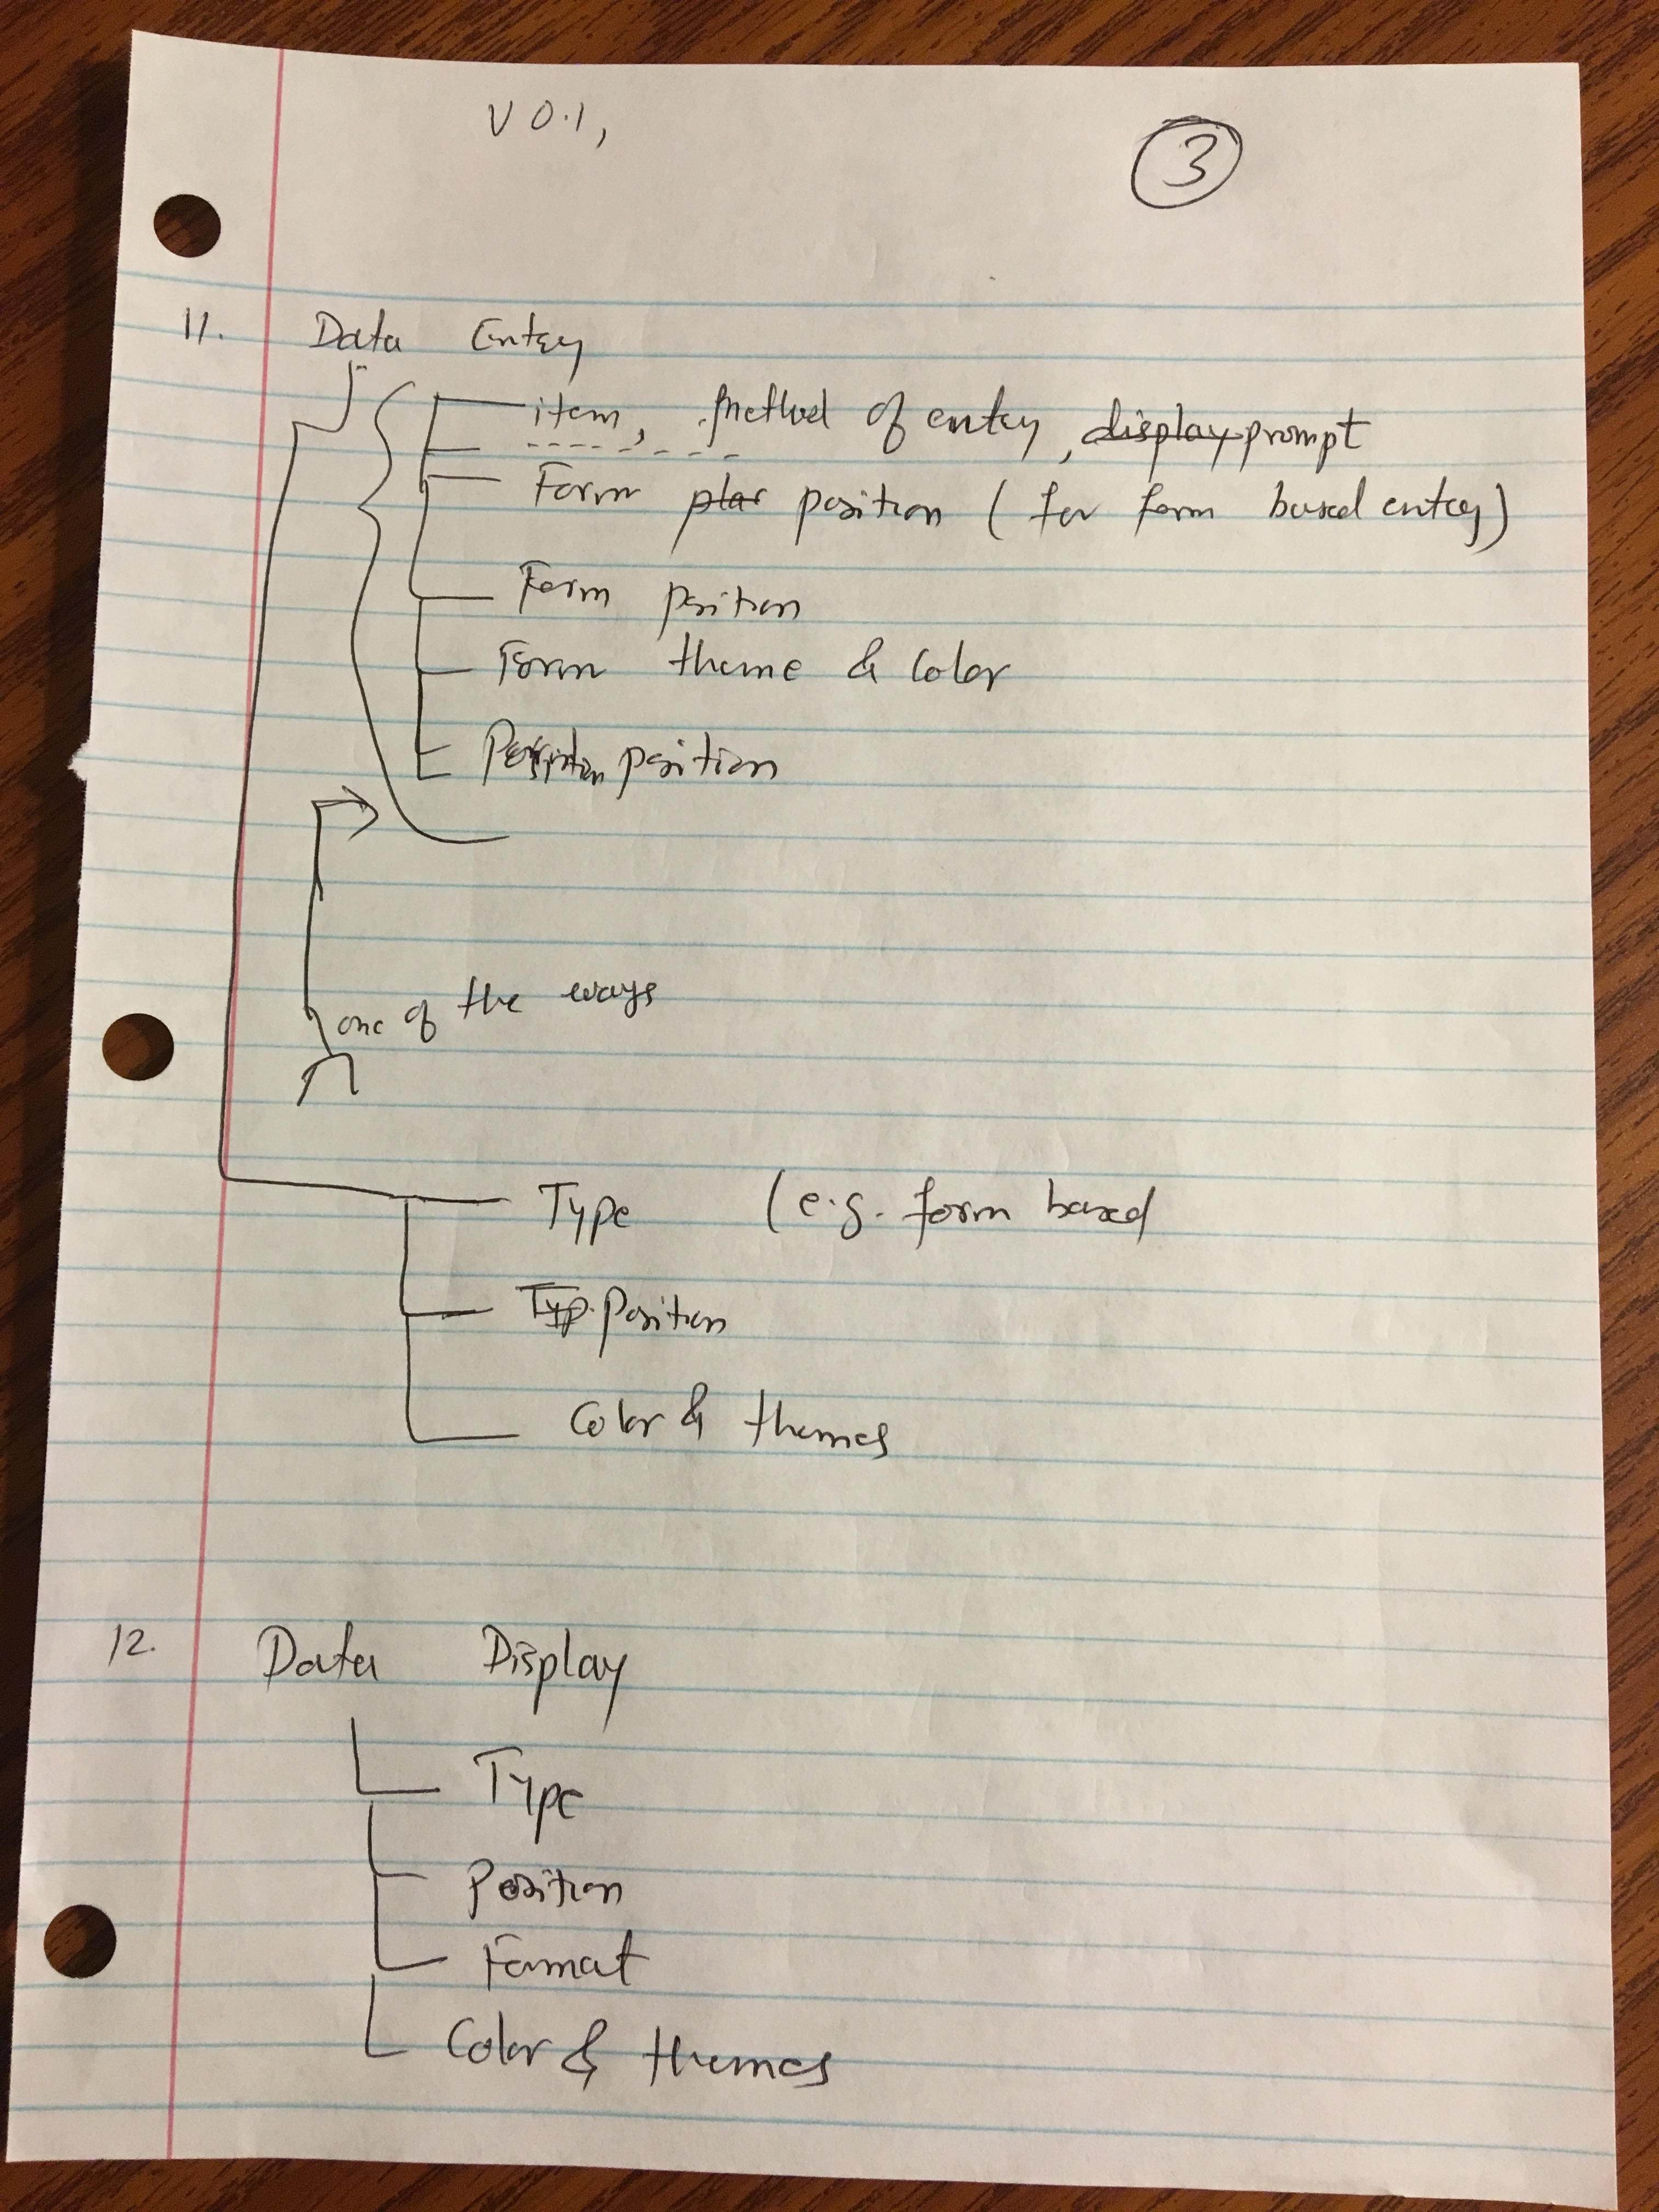 V 0.1,
3
11. Data Entry
item, method of entry, display prompt
Form position (for form based entry)
Form position
Form theme & Color
position
one of the ways
Type (e.g. form based
Typ. Position
Color & themes
12. Data Display
Type
Position
Format
Color & themes